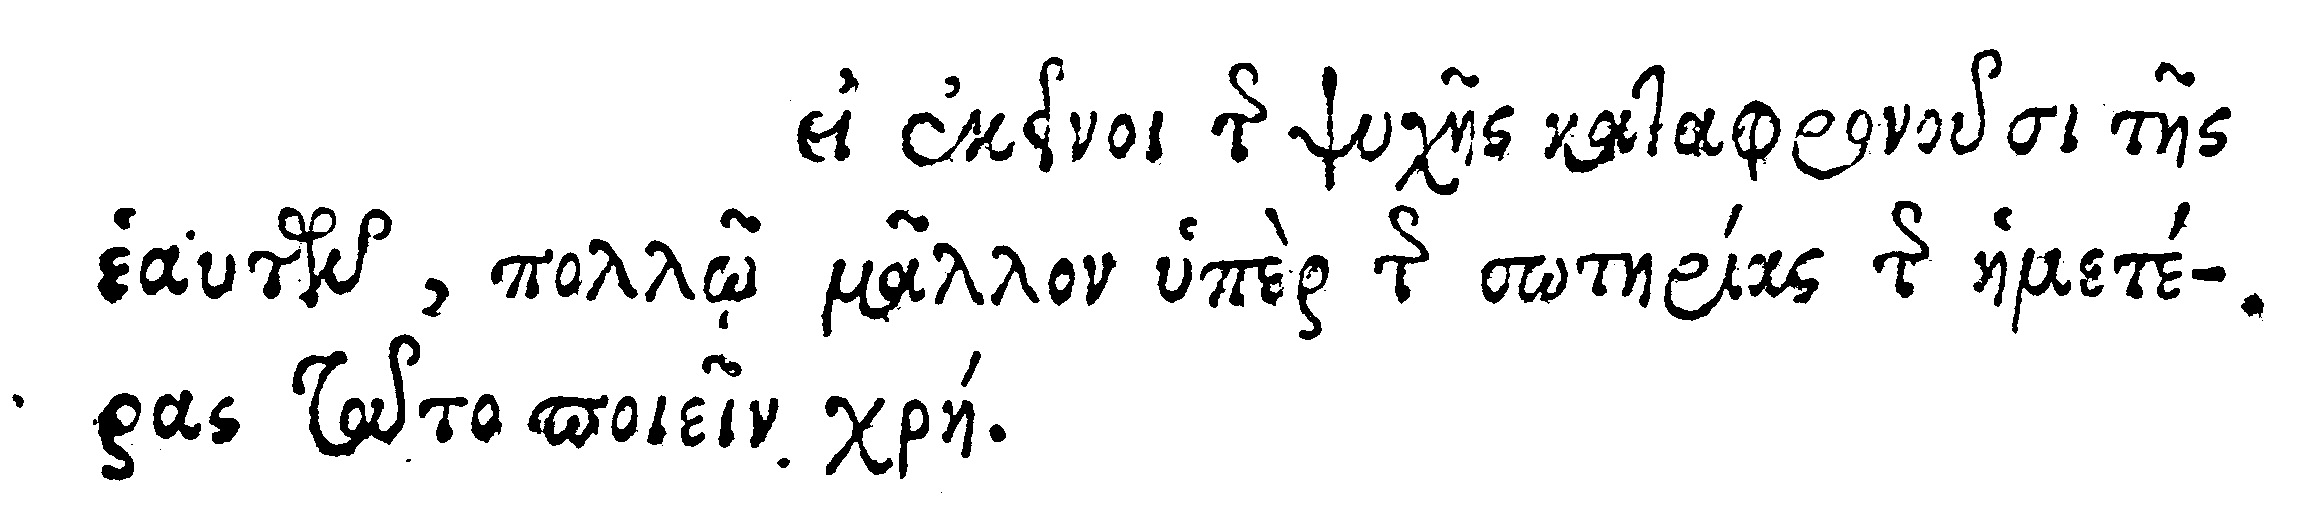 εἰ ἐκεῖνοι τῆς ψυχῆς καταφρονοῦσι τῆς
ἑαυτῶν, πολλῷ μᾶλλον ὑπὲρ τῆς σωτηρίας τῆς ἡμετέ-
ρας τοῦτο ποιεῖν χρή.